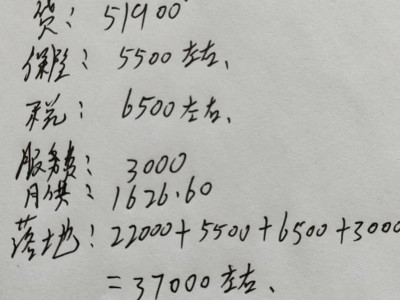 贷：51900
保险：5500左右、
税：6500左右、
服务费：3000
月供：1626.60
落地：22000+5500+6500+3000
=37000左右、